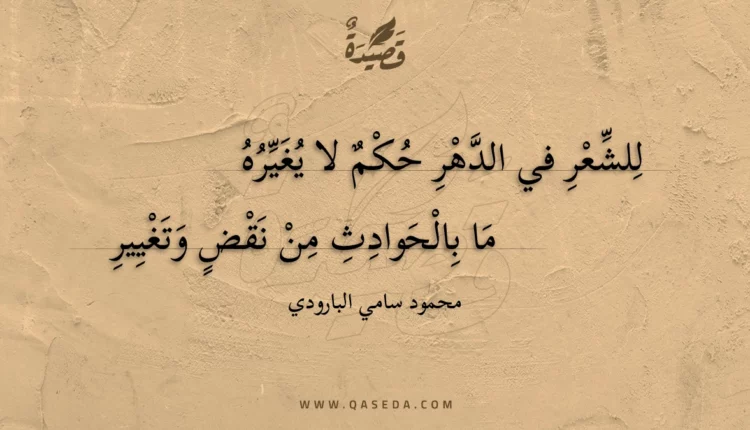 قَصِيدَةٌ
لِلشِّعْرِ في الدَّهْرِ حُكْمٌ لا يُغَيِّرُهُ
مَا بِالْحَوادِثِ مِنْ نَقْضٍ وَتَغْيِيرِ
محمود سامي البارودي
WWW.QASEDA.COM